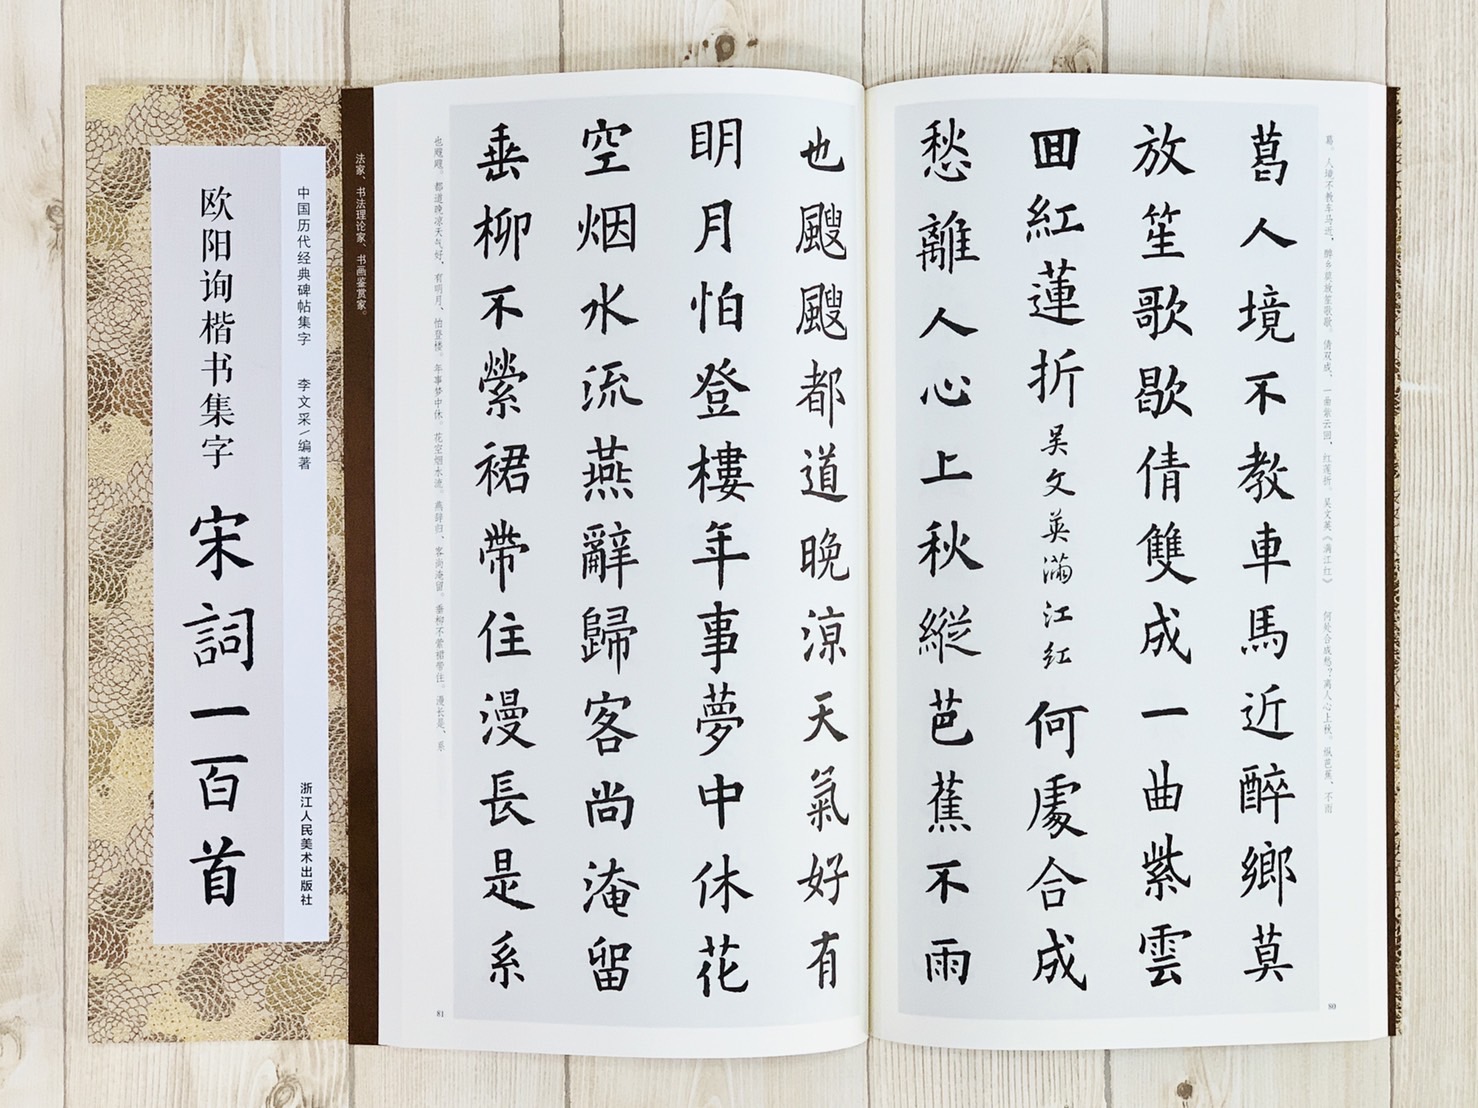 葛人境不教車馬近醉鄉莫
放笙歌歇倩雙成一曲紫雲
回紅蓮折吳文英滿江紅何處合成
愁離人心上秋縱芭蕉不雨
也颼颼都道晚涼天氣好有
明月怕登樓年事夢中休花
空烟水流燕辭歸客尚淹留
垂柳不縈裙帶住漫長是系
葛。人境不教车马近,醉乡莫放笙歌歇。倩双成、一曲紫云回,红莲折。吴文英《满江红》 何处合成愁?离人心上秋。纵芭蕉、不雨
80
也飕飕。都道晚凉天气好,有明月、怕登楼。年事梦中休。花空烟水流。燕辞归、客尚淹留。垂柳不萦裙带住。漫长是、系
81
法家、书法理论家、书画鉴赏家。
中国历代经典碑帖集字 李文采/编著
浙江人民美术出版社
欧阳询楷书集字
宋詞一百首